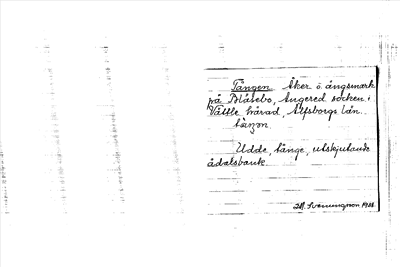 Tången. Åker o. ängsmark
på Blåsebo, Angered socken i
Vättle härad, Älfsborgs län.
tåŋən
Udde, långe, utskjutande
ådalsbank.
Svenungsson 1911